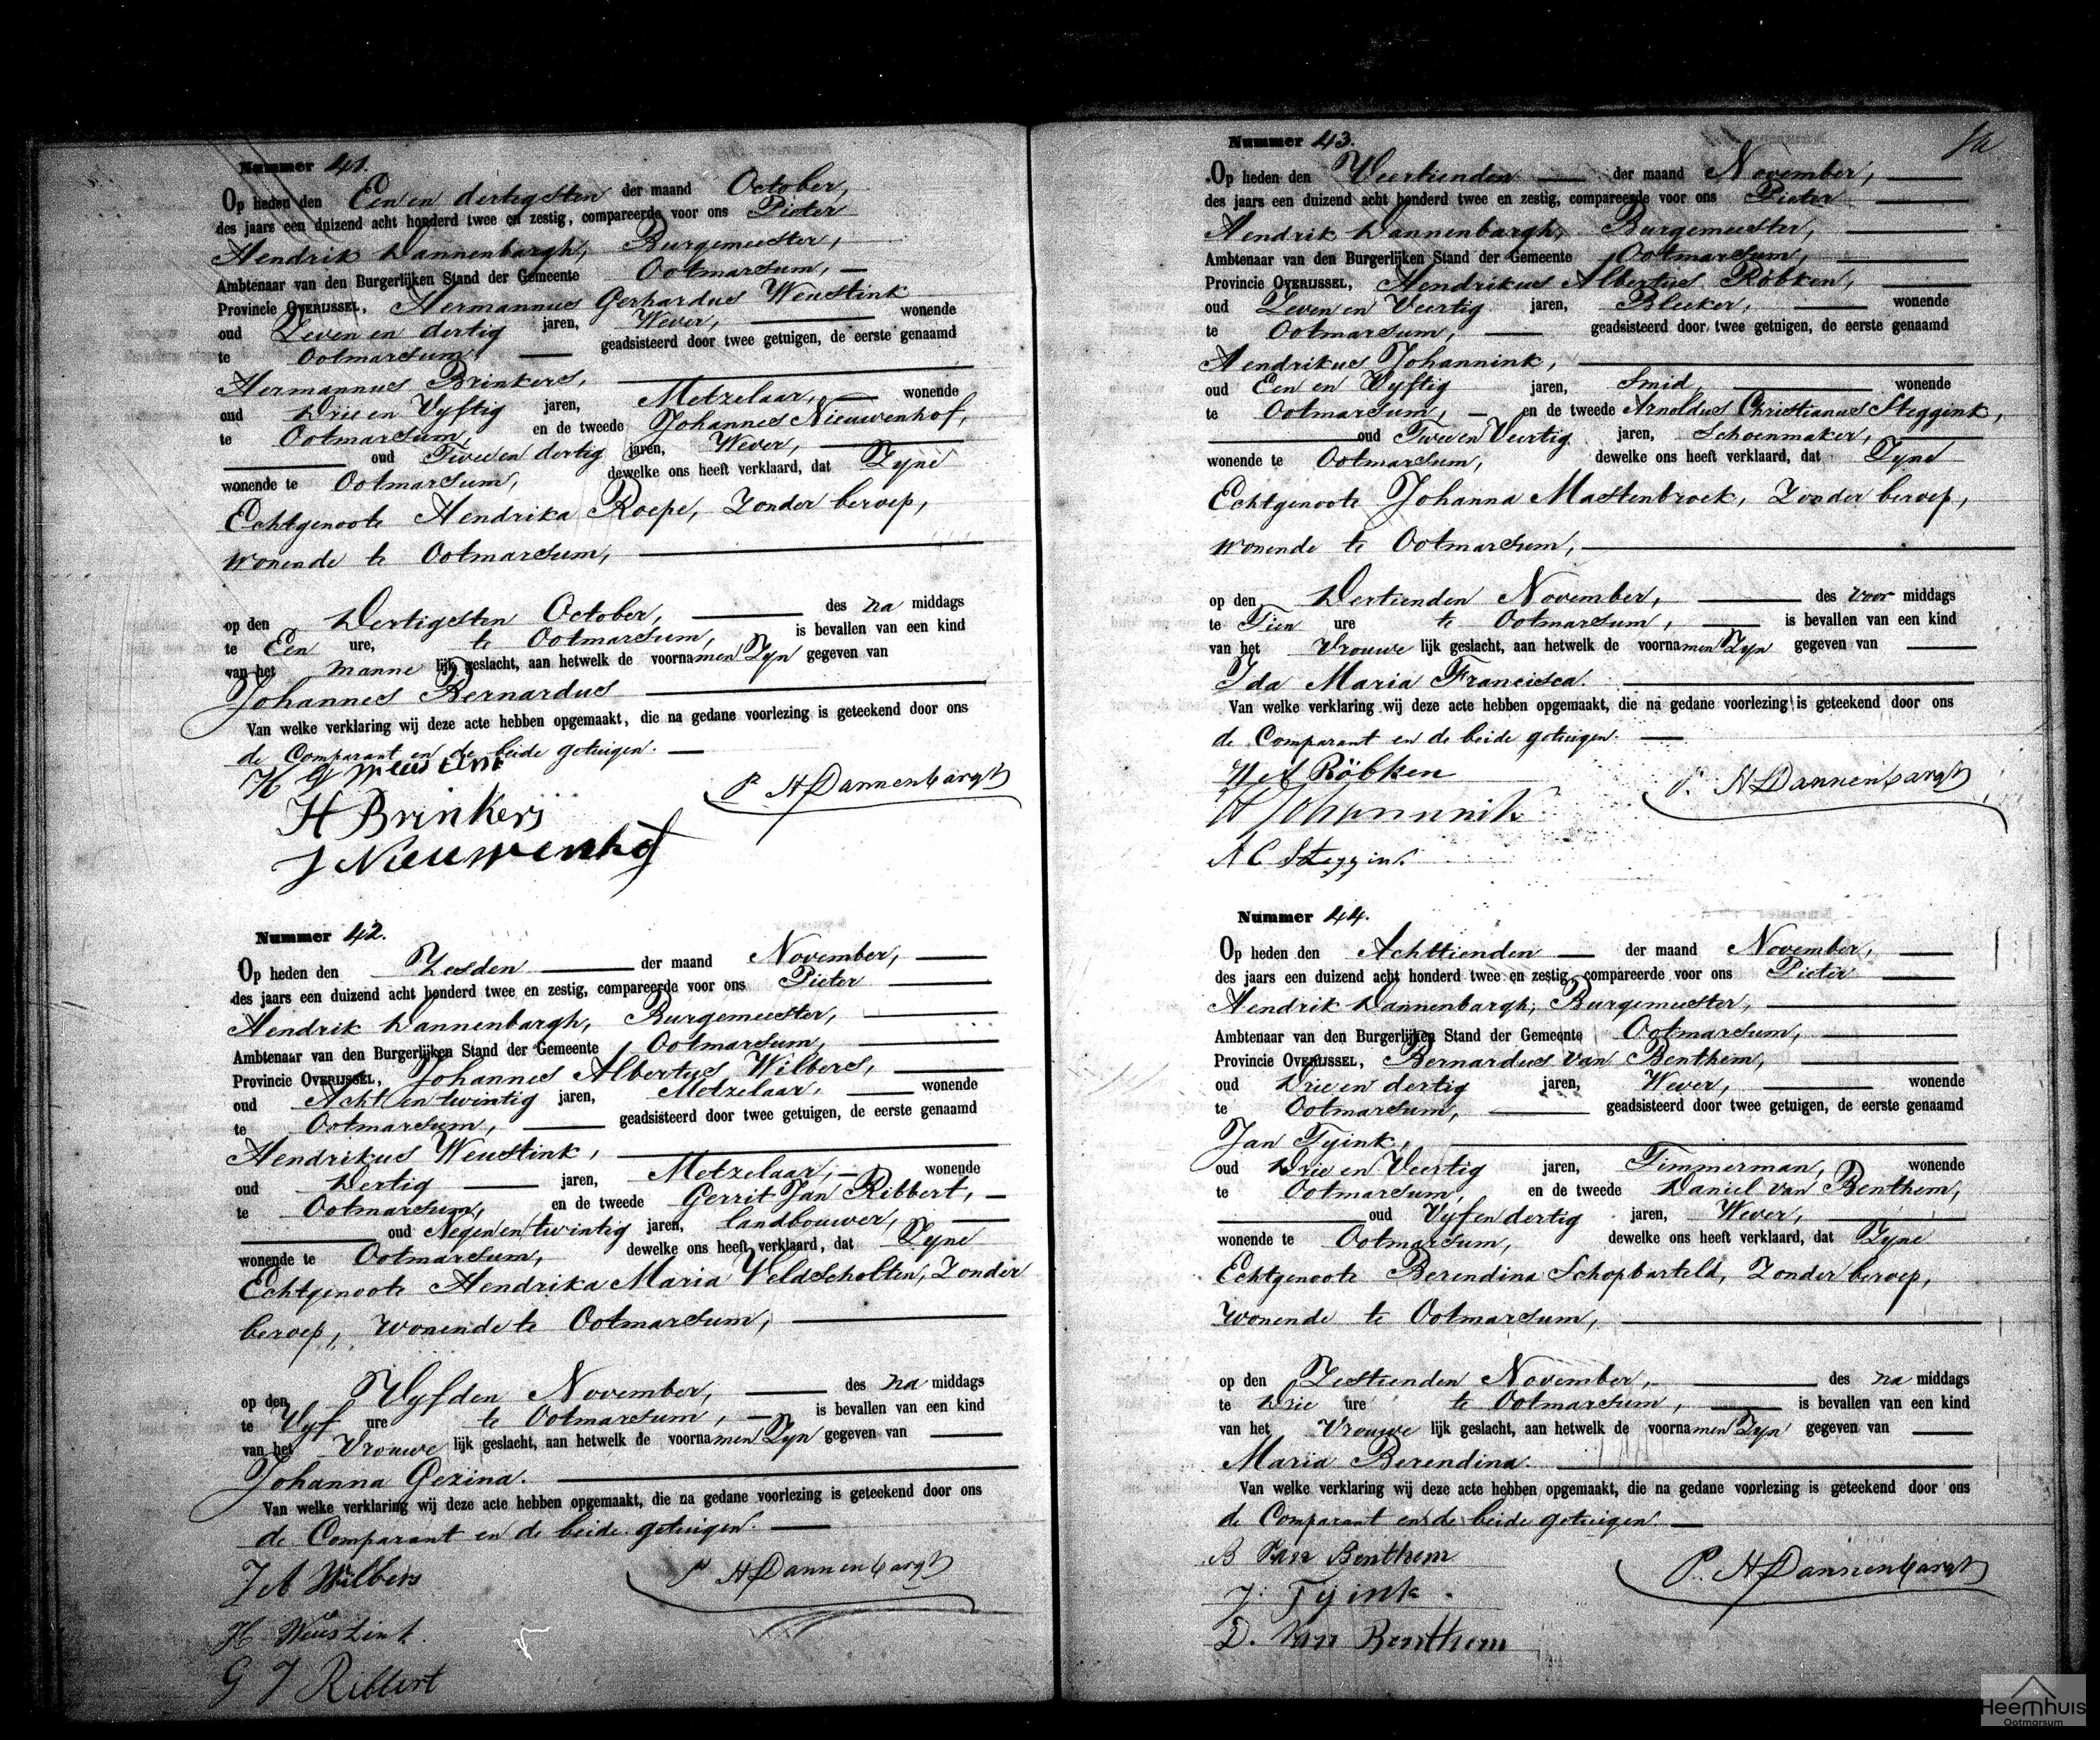 Nummer 41.
Op heden den Een en dertigsten der maand October,
des jaars een duizend acht honderd twee en zestig, compareerde voor ons Pieter
Hendrik Dannenbargh, Burgemeester,
Ambtenaar van den Burgerlijken Stand der Gemeente Ootmarsum,
Provincie OVERIJSSEL, Hermannus Gerhardus Weustink
oud Zeven en dertig jaren, Wever, wonende
te Ootmarsum geadsisteerd door twee getuigen, de eerste genaamd
Hermannus Brinkers,
oud Drie en Vyftig jaren, Metzelaar, wonende
te Ootmarsum, en de tweede Johannes Nieuwenhof,
oud Twee en dertig jaren, Wever,
wonende te Ootmarsum, dewelke ons heeft verklaard, dat Zyne
Echtgenoote Hendrika Roepe, Zonder beroep,
wonende te Ootmarsum,
op den Dertigsten October, des na middags
te Een ure, te Ootmarsum, is bevallen van een kind
van het manne lijk geslacht, aan hetwelk de voornamen Zyn gegeven van
Johannes Bernardus
Van welke verklaring wij deze acte hebben opgemaakt, die na gedane voorlezing is geteekend door ons
de Comparant en de beide getuigen.
H G Weustink
P H Dannenbargh
H Brinkers
J Nieuwenhof
Nummer 42.
Op heden den Zesden der maand November,
des jaars een duizend acht honderd twee en zestig, compareerde voor ons Pieter
Hendrik Dannenbargh, Burgemeester,
Ambtenaar van den Burgerlijken Stand der Gemeente Ootmarsum,
Provincie OVERIJSSEL, Johannes Albertus Wilbers,
oud Acht en twintig jaren, Metzelaar, wonende
te Ootmarsum, geadsisteerd door twee getuigen, de eerste genaamd
Hendrikus Weustink,
oud Dertig jaren, Metzelaar, wonende
te Ootmarsum, en de tweede Gerrit Jan Ribbert,
oud Negen en twintig jaren, landbouwer,
wonende te Ootmarsum, dewelke ons heeft verklaard, dat Zyne
Echtgenoote Hendrika Maria Veldscholten, Zonder
beroep, wonende te Ootmarsum,
op den Vyfden November, des na middags
te Vyf ure te Ootmarsum, is bevallen van een kind
van het Vrouwe lijk geslacht, aan hetwelk de voornamen Zyn gegeven van
Johanna Gezina.
Van welke verklaring wij deze acte hebben opgemaakt, die na gedane voorlezing is geteekend door ons
de Comparant en de beide getuigen.
J A Wilbers
P H Dannenbargh
H Weustink
G J Ribbert
Nummer 43.
Op heden den Veertienden der maand November,
des jaars een duizend acht honderd twee en zestig, compareerde voor ons Pieter
Hendrik Dannenbargh, Burgemeester,
Ambtenaar van den Burgerlijken Stand der Gemeente Ootmarsum,
Provincie OVERIJSSEL, Hendrikus Albertus Röbken,
oud Zeven en Veertig jaren, Bleeker, wonende
te Ootmarsum, geadsisteerd door twee getuigen, de eerste genaamd
Hendrikus Johannink,
oud Een en Vyftig jaren, Smid, wonende
te Ootmarsum, en de tweede Arnoldus Christianus Steggink,
oud Twee en Veertig jaren, Schoenmaker,
wonende te Ootmarsum, dewelke ons heeft verklaard, dat Zyne
Echtgenoote Johanna Mastenbroek, Zonder beroep,
wonende te Ootmarsum,
op den Dertienden November, des voor middags
te Tien ure te Ootmarsum, is bevallen van een kind
van het Vrouwe lijk geslacht, aan hetwelk de voornamen Zyn gegeven van
Ida Maria Francisca.
Van welke verklaring wij deze acte hebben opgemaakt, die na gedane voorlezing is geteekend door ons
de Comparant en de beide getuigen.
H A Röbken
P. H Dannenbargh
H Johannink
A C Steggink
Nummer 44.
Op heden den Achttienden der maand November,
des jaars een duizend acht honderd twee en zestig, compareerde voor ons Pieter
Hendrik Dannenbargh, Burgemeester,
Ambtenaar van den Burgerlijken Stand der Gemeente Ootmarsum,
Provincie OVERIJSSEL, Bernardus van Benthem,
oud Drie en dertig jaren, Wever, wonende
te Ootmarsum, geadsisteerd door twee getuigen, de eerste genaamd
Jan Tyink,
oud Drie en Veertig jaren, Timmerman, wonende
te Ootmarsum, en de tweede Daniel van Benthem,
oud Vyf en dertig jaren, Wever,
wonende te Ootmarsum, dewelke ons heeft verklaard, dat Zyne
Echtgenoote Berendina Schopbarteld, Zonder beroep,
wonende te Ootmarsum,
op den Zestienden November, des na middags
te Drie ure te Ootmarsum, is bevallen van een kind
van het Vrouwe lijk geslacht, aan hetwelk de voornamen Zyn gegeven van
Maria Berendina.
Van welke verklaring wij deze acte hebben opgemaakt, die na gedane voorlezing is geteekend door ons
de Comparant en de beide getuigen.
B Van Benthem
P. H Dannenbargh
J. Tyink.
D. Van Benthem
Heemhuis
Ootmarsum